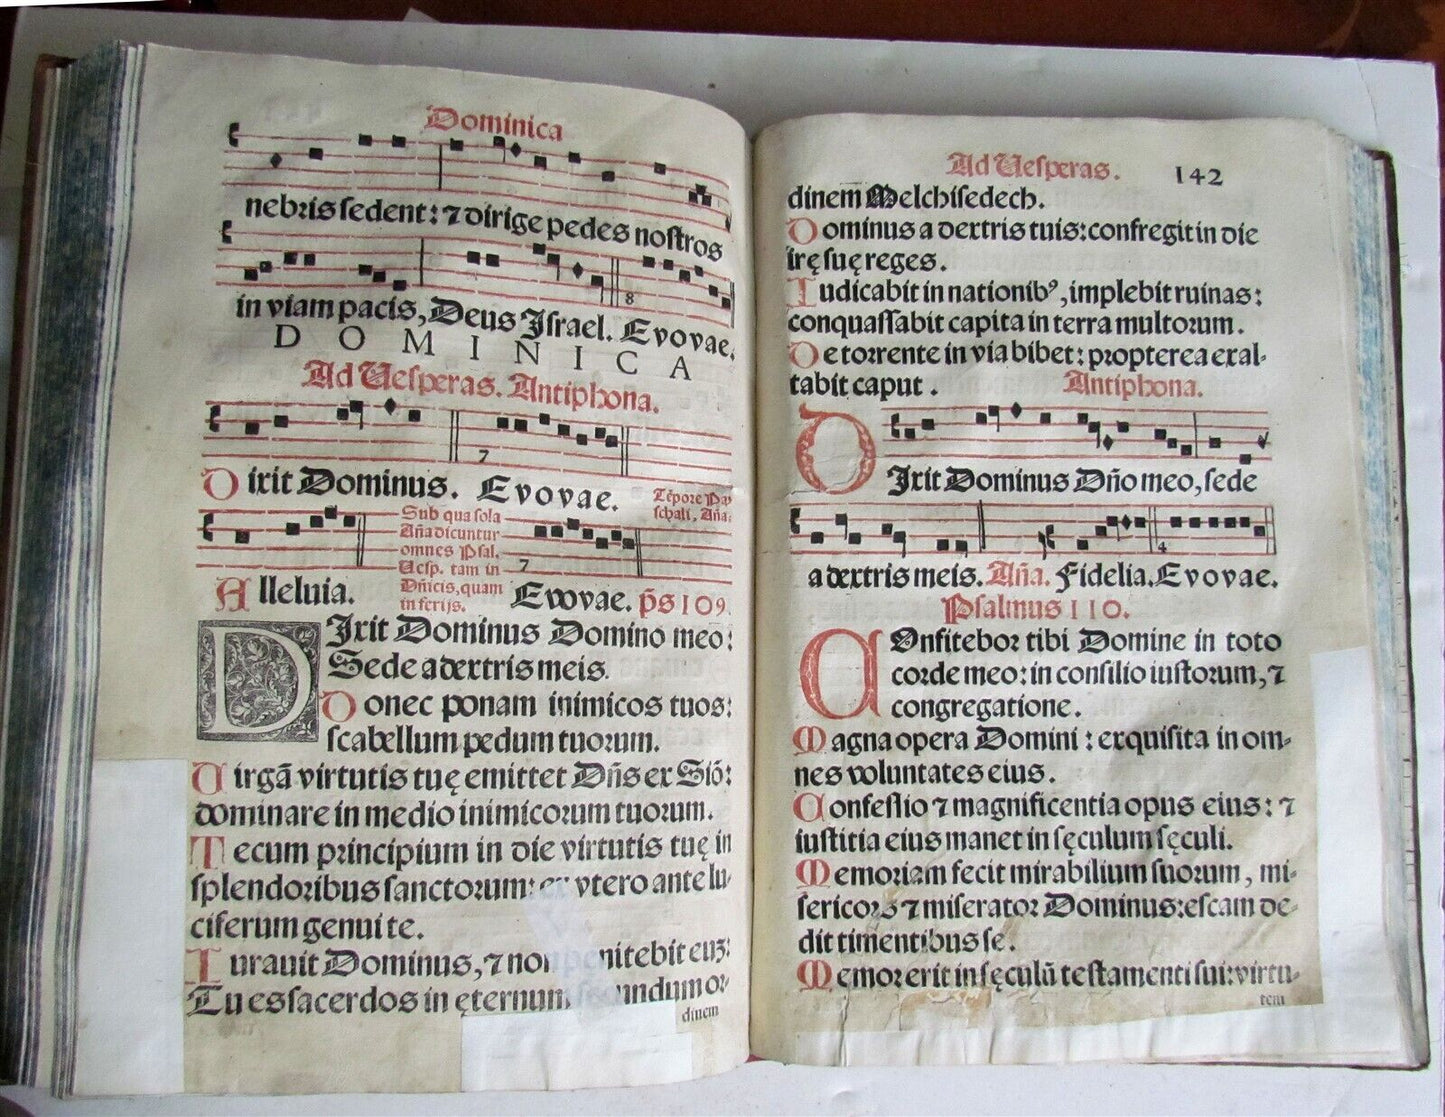 Dominica
nebris sedent: ⁊ dirige pedes nostros
in viam pacis, Deus Israel. Evovae.
8
DOMINICA
Ad Vesperas. Antiphona.
7
Dixit Dominus. Evovae.
Tẽpore Pa-
schali, Aña:
Sub qua sola
Aña dicuntur
omnes Psal.
Vesp. tam in
Dñicis, quam
in ferijs.
7
Alleluia. Evovae. p̃s 109.
DIxit Dominus Domino meo:
Sede a dextris meis.
Donec ponam inimicos tuos:
scabellum pedum tuorum.
Virgã virtutis tuę emittet Dñs ex Siõ:
dominare in medio inimicorum tuorum.
Tecum principium in die virtutis tuę in
splendoribus sanctorum: ex vtero ante lu-
ciferum genui te.
Iurauit Dominus, ⁊ non penitebit euʒ:
Tu es sacerdos in ęternum secundum or-
dinem
Ad Vesperas. 142
dinem Melchisedech.
Dominus a dextris tuis: confregit in die
irę suę reges.
Iudicabit in nationibꝰ, implebit ruinas:
conquassabit capita in terra multorum.
De torrente in via bibet: propterea exal-
tabit caput. Antiphona.
DIxit Dominus Dño meo, sede
4
a dextris meis. Aña. Fidelia. Evovae.
Psalmus 110.
COnfitebor tibi Domine in toto
corde meo: in consilio iustorum, ⁊
congregatione.
Magna opera Domini: exquisita in om-
nes voluntates eius.
Confessio ⁊ magnificentia opus eius: ⁊
iustitia eius manet in sęculum sęculi.
Memoriam fecit mirabilium suorum, mi-
sericors ⁊ miserator Dominus: escam de-
dit timentibus se.
Memor erit in sęculũ testamenti sui: virtu-
tem